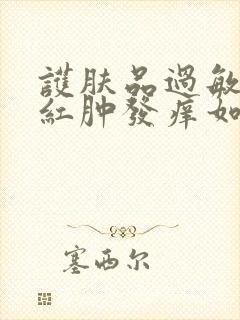 護肤品過敏
紅肿發痒如
塞西尔